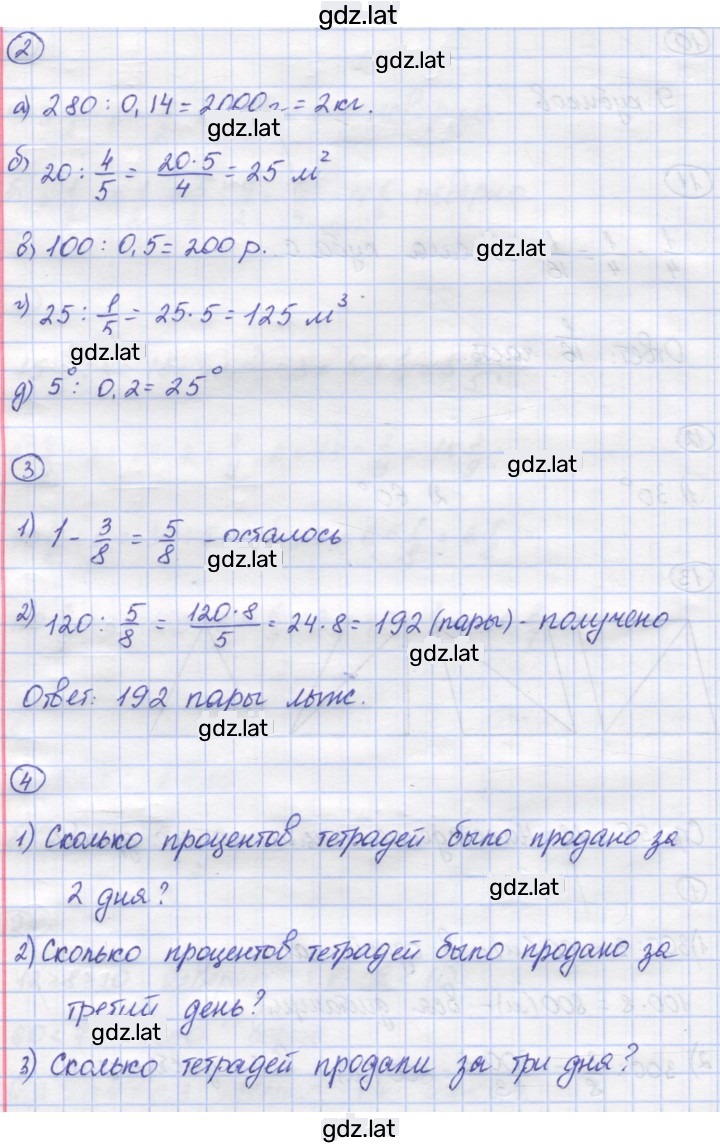 gdz.lat
2
gdz.lat
а) 280 : 0,14 = 2000 г. = 2 кг.
gdz.lat
б) 20 : 4/5 = 20·5/4 = 25 м²
в) 100 : 0,5 = 200 р.
gdz.lat
г) 25 : 1/5 = 25·5 = 125 м³
gdz.lat
д) 5° : 0,2 = 25°
3
gdz.lat
1) 1 - 3/8 = 5/8 - осталось
gdz.lat
2) 120 : 5/8 = 120·8/5 = 24·8 = 192 (пары) - получено
gdz.lat
Ответ: 192 пары лыж.
gdz.lat
4
1) Сколько процентов тетрадей было продано за
2 дня?
gdz.lat
2) Сколько процентов тетрадей было продано за
третий день?
gdz.lat
3) Сколько тетрадей продали за три дня?
gdz.lat